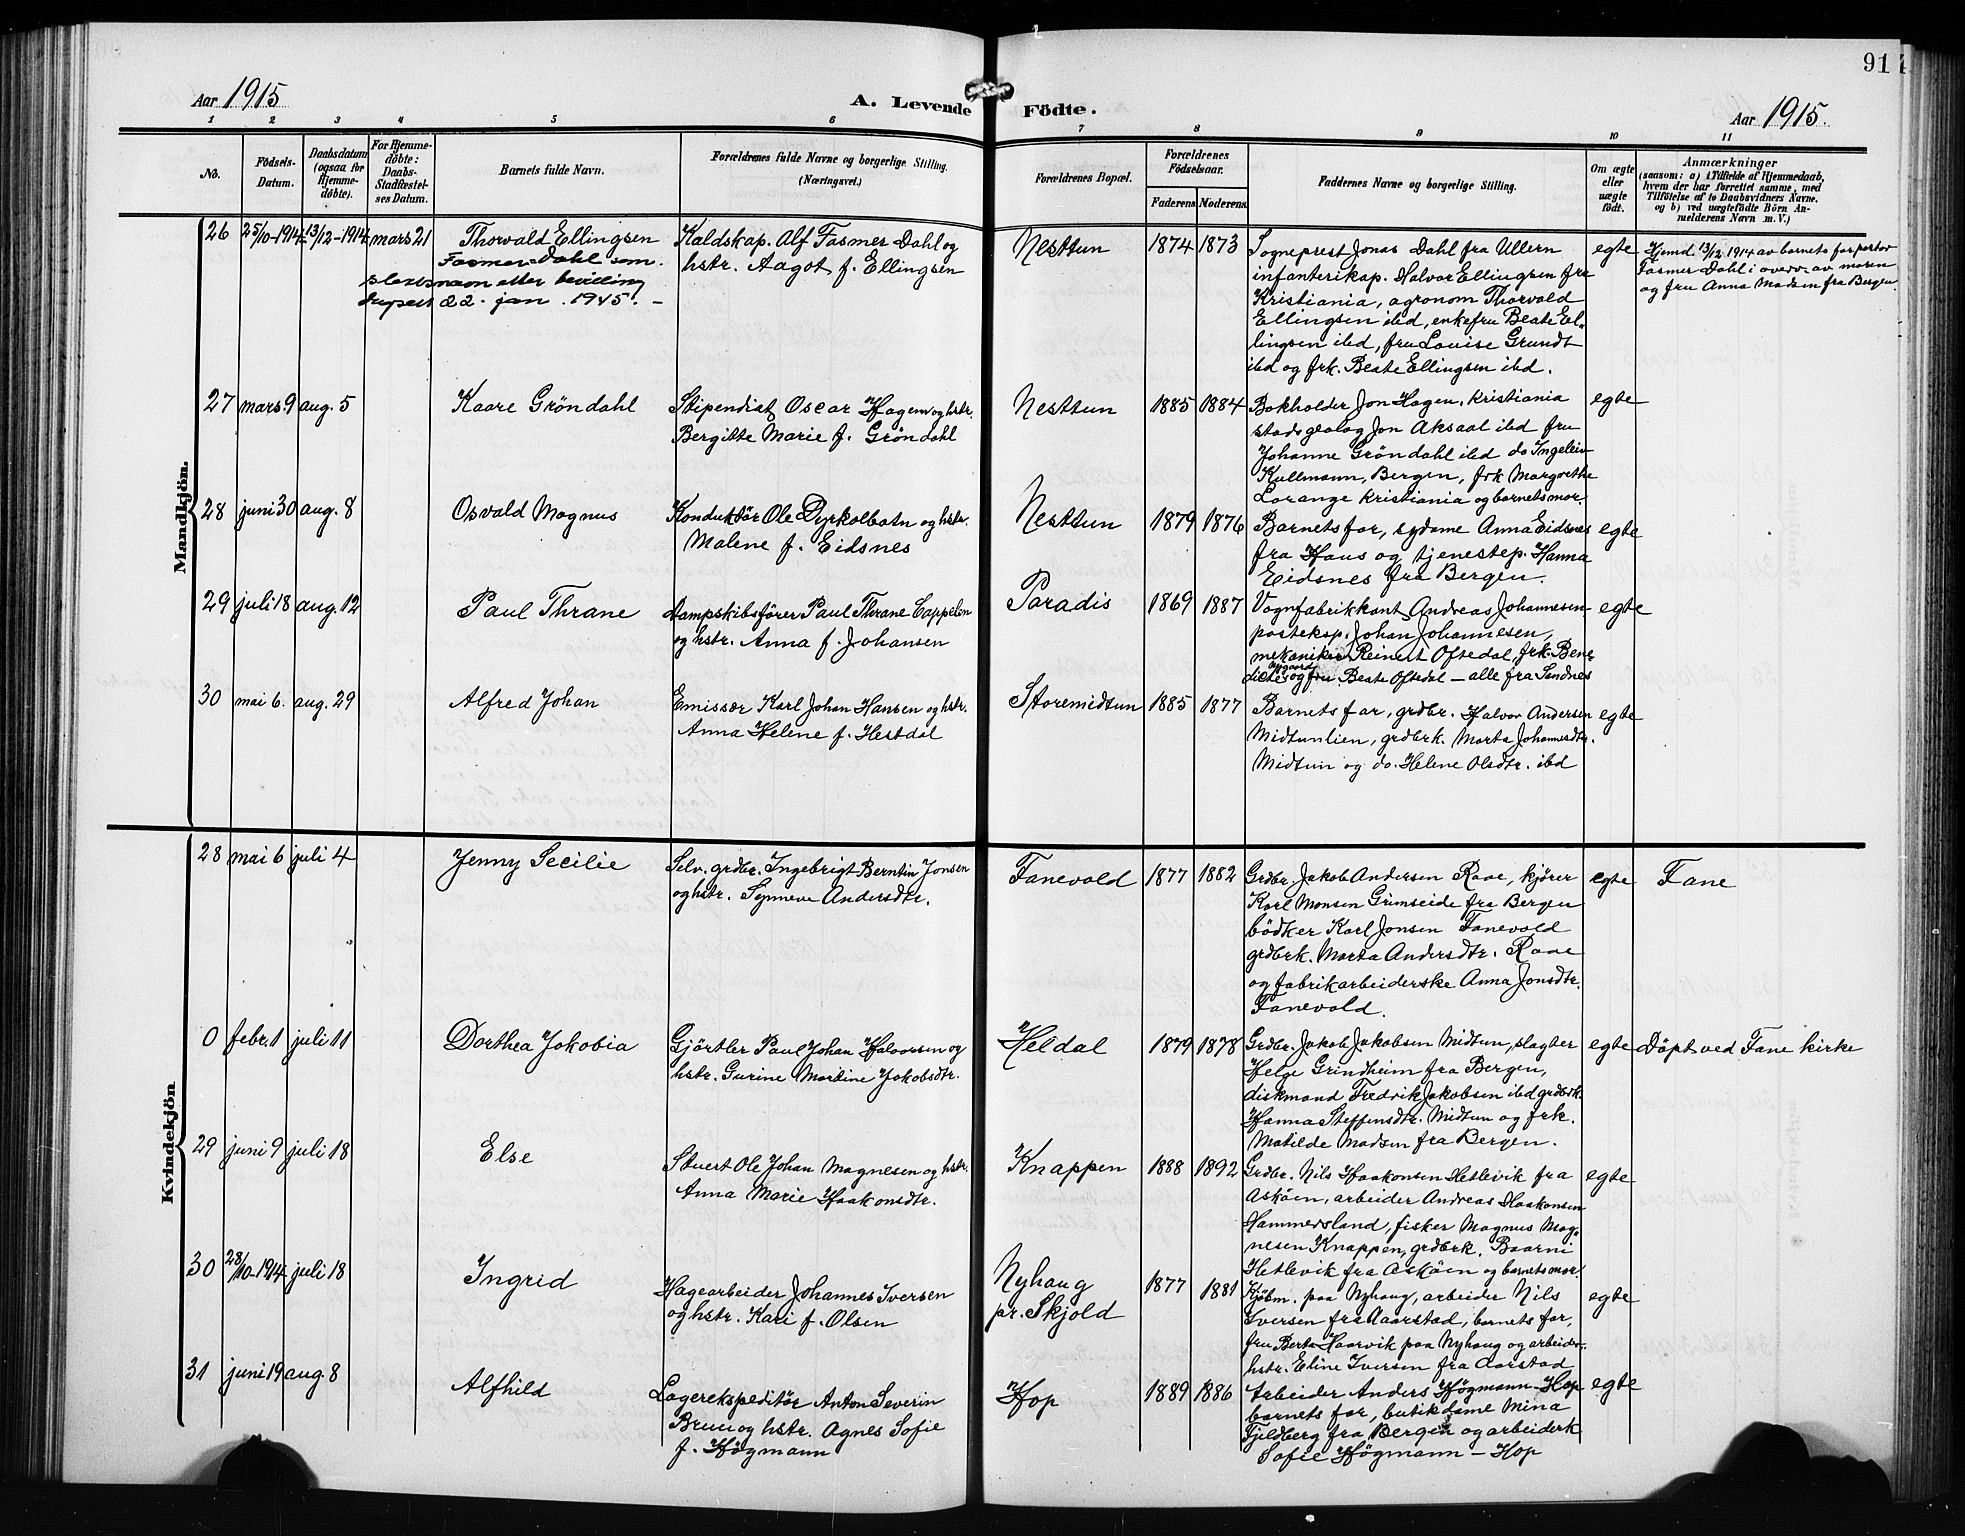 91
Aar 1915
A. Levende Födte.
Aar 1915.
1 2 3 4 5 6 7 8 9 10 11
No.
Födsels-
Datum.
Daabsdatum
(ogsaa for
Hjemme-
døbte).
For Hjemme-
døbte:
Daabs-
Stadfæstel-
ses Datum.
Barnets fulde Navn.
Forældrenes fulde Navne og borgerlige Stilling.
(Næringsvei.)
Forældrenes Bopæl.
Forældrenes
Födselsaar.
Faderens Moderens
Faddernes Navne og borgerlige Stilling.
Om ægte
eller
uægte
født.
Anmærkninger
(saasom: a) i Tilfælde af Hjemmedaab,
hvem der har forrettet samme, med
Tilföielse af to Daabsvidners Navne,
og b) ved uægtefödte Börn An-
melderens Navn m. V.)
Mandkjön.
26 25/10-1914 13/12-1914 mars 21
Thorvald Ellingsen
Fasmer Dahl som
slektsnavn etter bevilling
22. jan. 1945. -
Kaldskap. Alf Fasmer Dahl og
hstr. Aagot f. Ellingsen
Nesttun 1874 1873
Sogneprest Jonas Dahl fra Ullern
infanterikap. Halvor Ellingsen fra
Kristiania, agronom Thorvald
Ellingsen ibd, enkefru Beate El-
lingsen ibd, fru Louise Grundt
ibd og frk. Beate Ellingsen ibd.
egte
Hjemd. 13/12 1914 av barnets far pastor
Fasmer Dahl i overv. av moren
og fru Anna Madsen fra Bergen.
27 mars 9 aug. 5
Kaare Gröndahl
Stipendiat Oscar Hagem og hstr.
Bergitte Marie f. Gröndahl
Nesttun 1885 1884
Bokholder Jon Hagen, Kristiania
stadsgeolog Jon Aksaal ibd fru
Johanne Gröndahl ibd do Ingeleiv
Kullmann, Bergen, frk Margrethe
Lorange Kristiania og barnets mor.
egte
28 juni 30 aug. 8
Osvald Magnus
Konduktör Ole Dyrkolbotn og hstr.
Malene f. Eidsnes
Nesttun 1879 1876
Barnets far, sydame Anna Eidsnes
fra Haus og tjenestep. Hanna
Eidsnes fra Bergen.
egte
29 juli 18 aug. 12
Paul Thrane
Dampskibsförer Paul Thrane Cappelen
og hstr. Anna f. Johansen
Paradis 1869 1887
Vognfabrikkant Andreas Johannesen
posteksp. Johan Johannesen,
mekaniker Reinert Oftedal, frk. Bene-
dicte og fru Beate Oftedal - alle fra Sandnes
egte
30 mai 6. aug. 29
Alfred Johan
Emissær Karl Johan Hansen og hstr.
Anna Helene f. Hestdal
Storemidtun 1885 1877
Barnets far, grdbr. Halvor Andersen
Midtunlien, grdbrk. Marta Johannesdtr.
Midtun og do. Helene Olsdtr. ibd
egte
Kvindekjön
28 mai 6 juli 4
Jenny Secilie
Selv. grdbr. Ingebrigt Berntin Jonsen
og hstr. Synneve Andersdtr.
Fanevold 1877 1882
Grdbr. Jakob Andersen Raae, kjører
Karl Monsen Grimseide fra Bergen
bödker Karl Jonsen Fanevold
grdbrk. Marta Andersdtr. Raae
og fabrikarbeiderske Anna Jonsdtr.
Fanevold.
egte Fane
0 febr. 1 juli 11
Dorthea Jakobia
Gjörtler Paul Johan Halvorsen og
hstr. Gurine Martine Jakobsdtr.
Heldal 1879 1878
Grdbr. Jakob Jakobsen Midtun, slagter
Helge Grindheim fra Bergen,
diskmand Fredrik Jakobsen ibd grdbrk
Hanna Steffensdtr. Midtun og frk.
Matilde Madsen fra Bergen.
egte Döpt ved Fane kirke
29 juni 9 juli 18
Else
Stuert Ole Johan Magnesen og hstr.
Anna Marie Haakonsdtr.
Knappen 1888 1892
Grdbr. Nils Haakonsen Hetlevik fra
Asköen, arbeider Andreas Haakonsen
Hammersland, fisker Magnus Mag-
nesen Knappen, grdbrk. Baarni
Hetlevik fra Asköen og barnets mor.
egte
30 28/10-1914 juli 18
Ingrid
Hagearbeider Johannes Iversen
og hstr. Kari f. Olsen
Nyhaug
pr. Skjold
1877 1881
Kjøbm. paa Nyhaug, arbeider Nils
Iversen fra Aarstad, barnets far,
fru Berta Haarvik paa Nyhaug og arbeider-
hstr. Eline Iversen fra Aarstad
egte
31 juni 19 aug. 8
Alfhild
Lagerekspeditör Anton Severin
Bruu og hstr. Agnes Sofie
f. Høgmann
Hop 1889 1886
Arbeider Anders Høgmann - Hop
barnets far, butikdame Mina
Fjeldberg fra Bergen og arbeiderk
Sofie Høgmann - Hop
egte